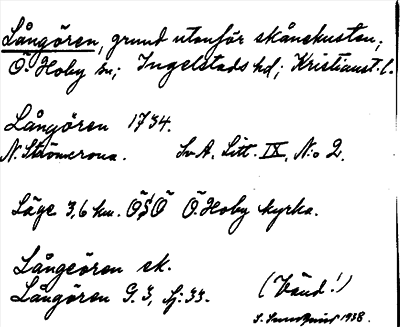 Långören, grund utanför skånekusten;
Ö. Hoby sn; Ingelstads hd; Kristianst. l.
Långören 1734.
N. Strömcrona. Sv. A. Litt. IX, N:o 2.
Läge 3,6 km. ÖSÖ Ö. Hoby kyrka.
Långeören ek.
Långören G. 3, Sj: 33. (Vänd!)
1938.